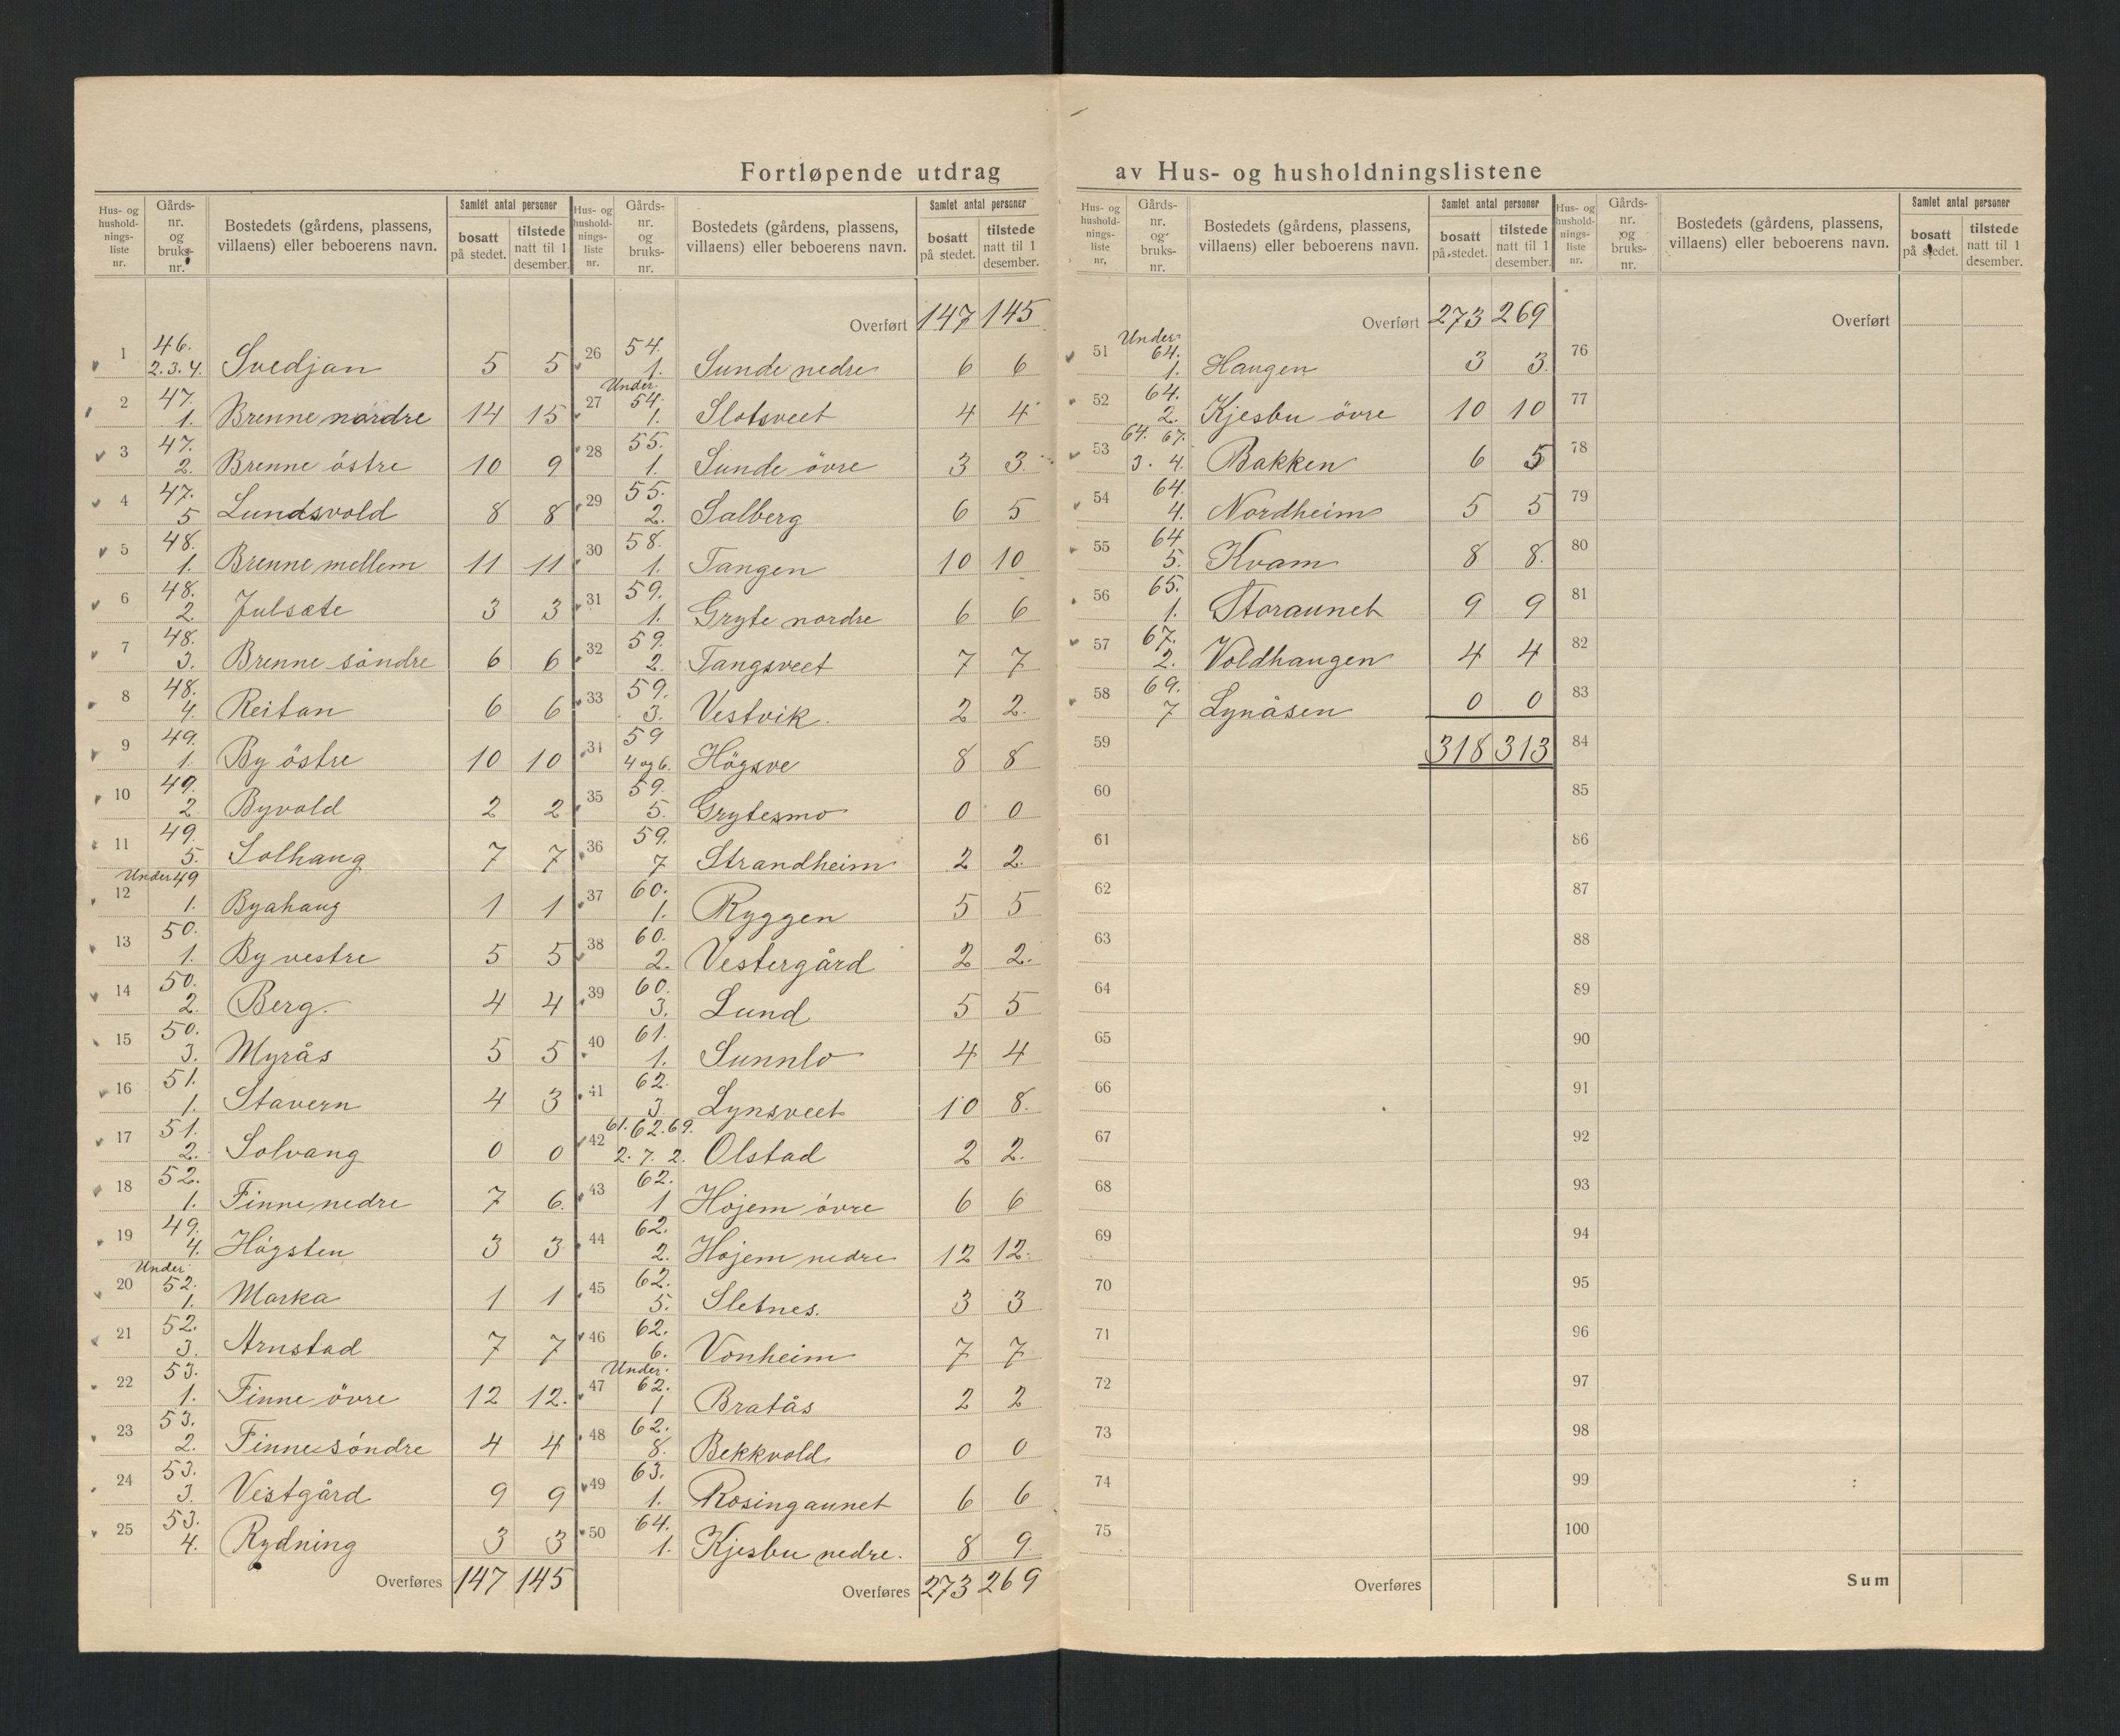 Fortløpende utdrag av Hus- og husholdningslistene
Hus- og hushold-nings-liste nr. | Gårds-nr. og bruks-nr. | Bostedets (gårdens, plassens, villaens) eller beboerens navn. | Samlet antal personer | bosatt på stedet. | tilstede natt til 1 desember.
1 46. 2.3.4. Svedjan 5 5
2 47. 1. Brenne nordre 14 15
3 47. 2. Brenne östre 10 9
4 47. 5 Lundsvold 8 8
5 48. 1. Brenne mellem 11 11
6 48. 2. Julsæte 3 3
7 48. 3. Brenne söndre 6 6
8 48. 4. Reitan 6 6
9 49. 1. By östre 10 10
10 49. 2. Byvold 2 2
11 49. 5. Solhaug 7 7
12 Under 49 1. Byahaug 1 1
13 50. 1. By vestre 5 5
14 50. 2. Berg. 4 4
15 50. 3. Myrås 5 5
16 51. 1. Stavern 4 3
17 51. 2. Solvang 0 0
18 52. 1. Finne nedre 7 6.
19 49. 4. Högsten 3 3
20 Under 52. 1. Marka 1 1
21 52. 3. Arnstad 7 7
22 53. 1. Finne övre 12 12.
23 53. 2. Finne söndre 4 4
24 53. 3. Vestgård 9 9
25 53. 4. Rydning 3 3
Overføres 147 145
Hus- og hushold-nings-liste nr. | Gårds-nr. og bruks-nr. | Bostedets (gårdens, plassens, villaens) eller beboerens navn. | Samlet antal personer | bosatt på stedet. | tilstede natt til 1 desember.
Overført 147 145
26 54. 1. Sunde nedre 6 6
27 Under. 54. 1. Slotsveet 4 4
28 55. 1. Sunde övre 3 3.
29 55. 2. Salberg 6 5
30 58. 1. Tangen 10 10
31 59. 1. Gryte nordre 6 6
32 59. 2. Tangsveet 7 7
33 59. 3. Vestvik. 2 2.
34 59 4 og 6. Högsve 8 8
35 59. 5. Grytesmo 0 0
36 59. 7 Strandheim 2 2.
37 60. 1. Ryggen 5 5
38 60. 2. Vestergård 2 2.
39 60. 3. Lund 5 5
40 61. 1. Sunnlo 4 4
41 62. 3 Lynsveet 10 8.
42 61. 62. 69. 2. 7. 2. Olstad 2 2.
43 62. 1 Hojem övre 6 6
44 62. 2. Hojem nedre 12 12.
45 62. 5. Sletnes. 3 3
46 62. 6. Vonheim 7 7
47 Under. 62. 1 Bratås 2 2
48 62. 8. Bekkvold 0 0
49 63. 1. Rosingaunet 6 6
50 64. 1. Kjesbu nedre. 8 9.
Overføres 273 269
Hus- og hushold-nings-liste nr. | Gårds-nr. og bruks-nr. | Bostedets (gårdens, plassens, villaens) eller beboerens navn. | Samlet antal personer | bosatt på stedet. | tilstede natt til 1 desember.
Overført 273 269
51 Under 64. 1. Haugen 3 3.
52 64. 2. Kjesbu övre 10 10
53 64. 67. 3. 4. Bakken 6 5
54 64. 4. Nordheim 5 5
55 64 5. Kvam 8 8.
56 65. 1. Storaunet 9 9
57 67. 2. Voldhaugen 4 4
58 69. 7 Lynåsen 0 0
59 318 313
60
61
62
63
64
65
66
67
68
69
70
71
72
73
74
75
Overføres
Hus- og hushold-nings-liste nr. | Gårds-nr. og bruks-nr. | Bostedets (gårdens, plassens, villaens) eller beboerens navn. | Samlet antal personer | bosatt på stedet. | tilstede natt til 1 desember.
Overført
76
77
78
79
80
81
82
83
84
85
86
87
88
89
90
91
92
93
94
95
96
97
98
99
100
Sum